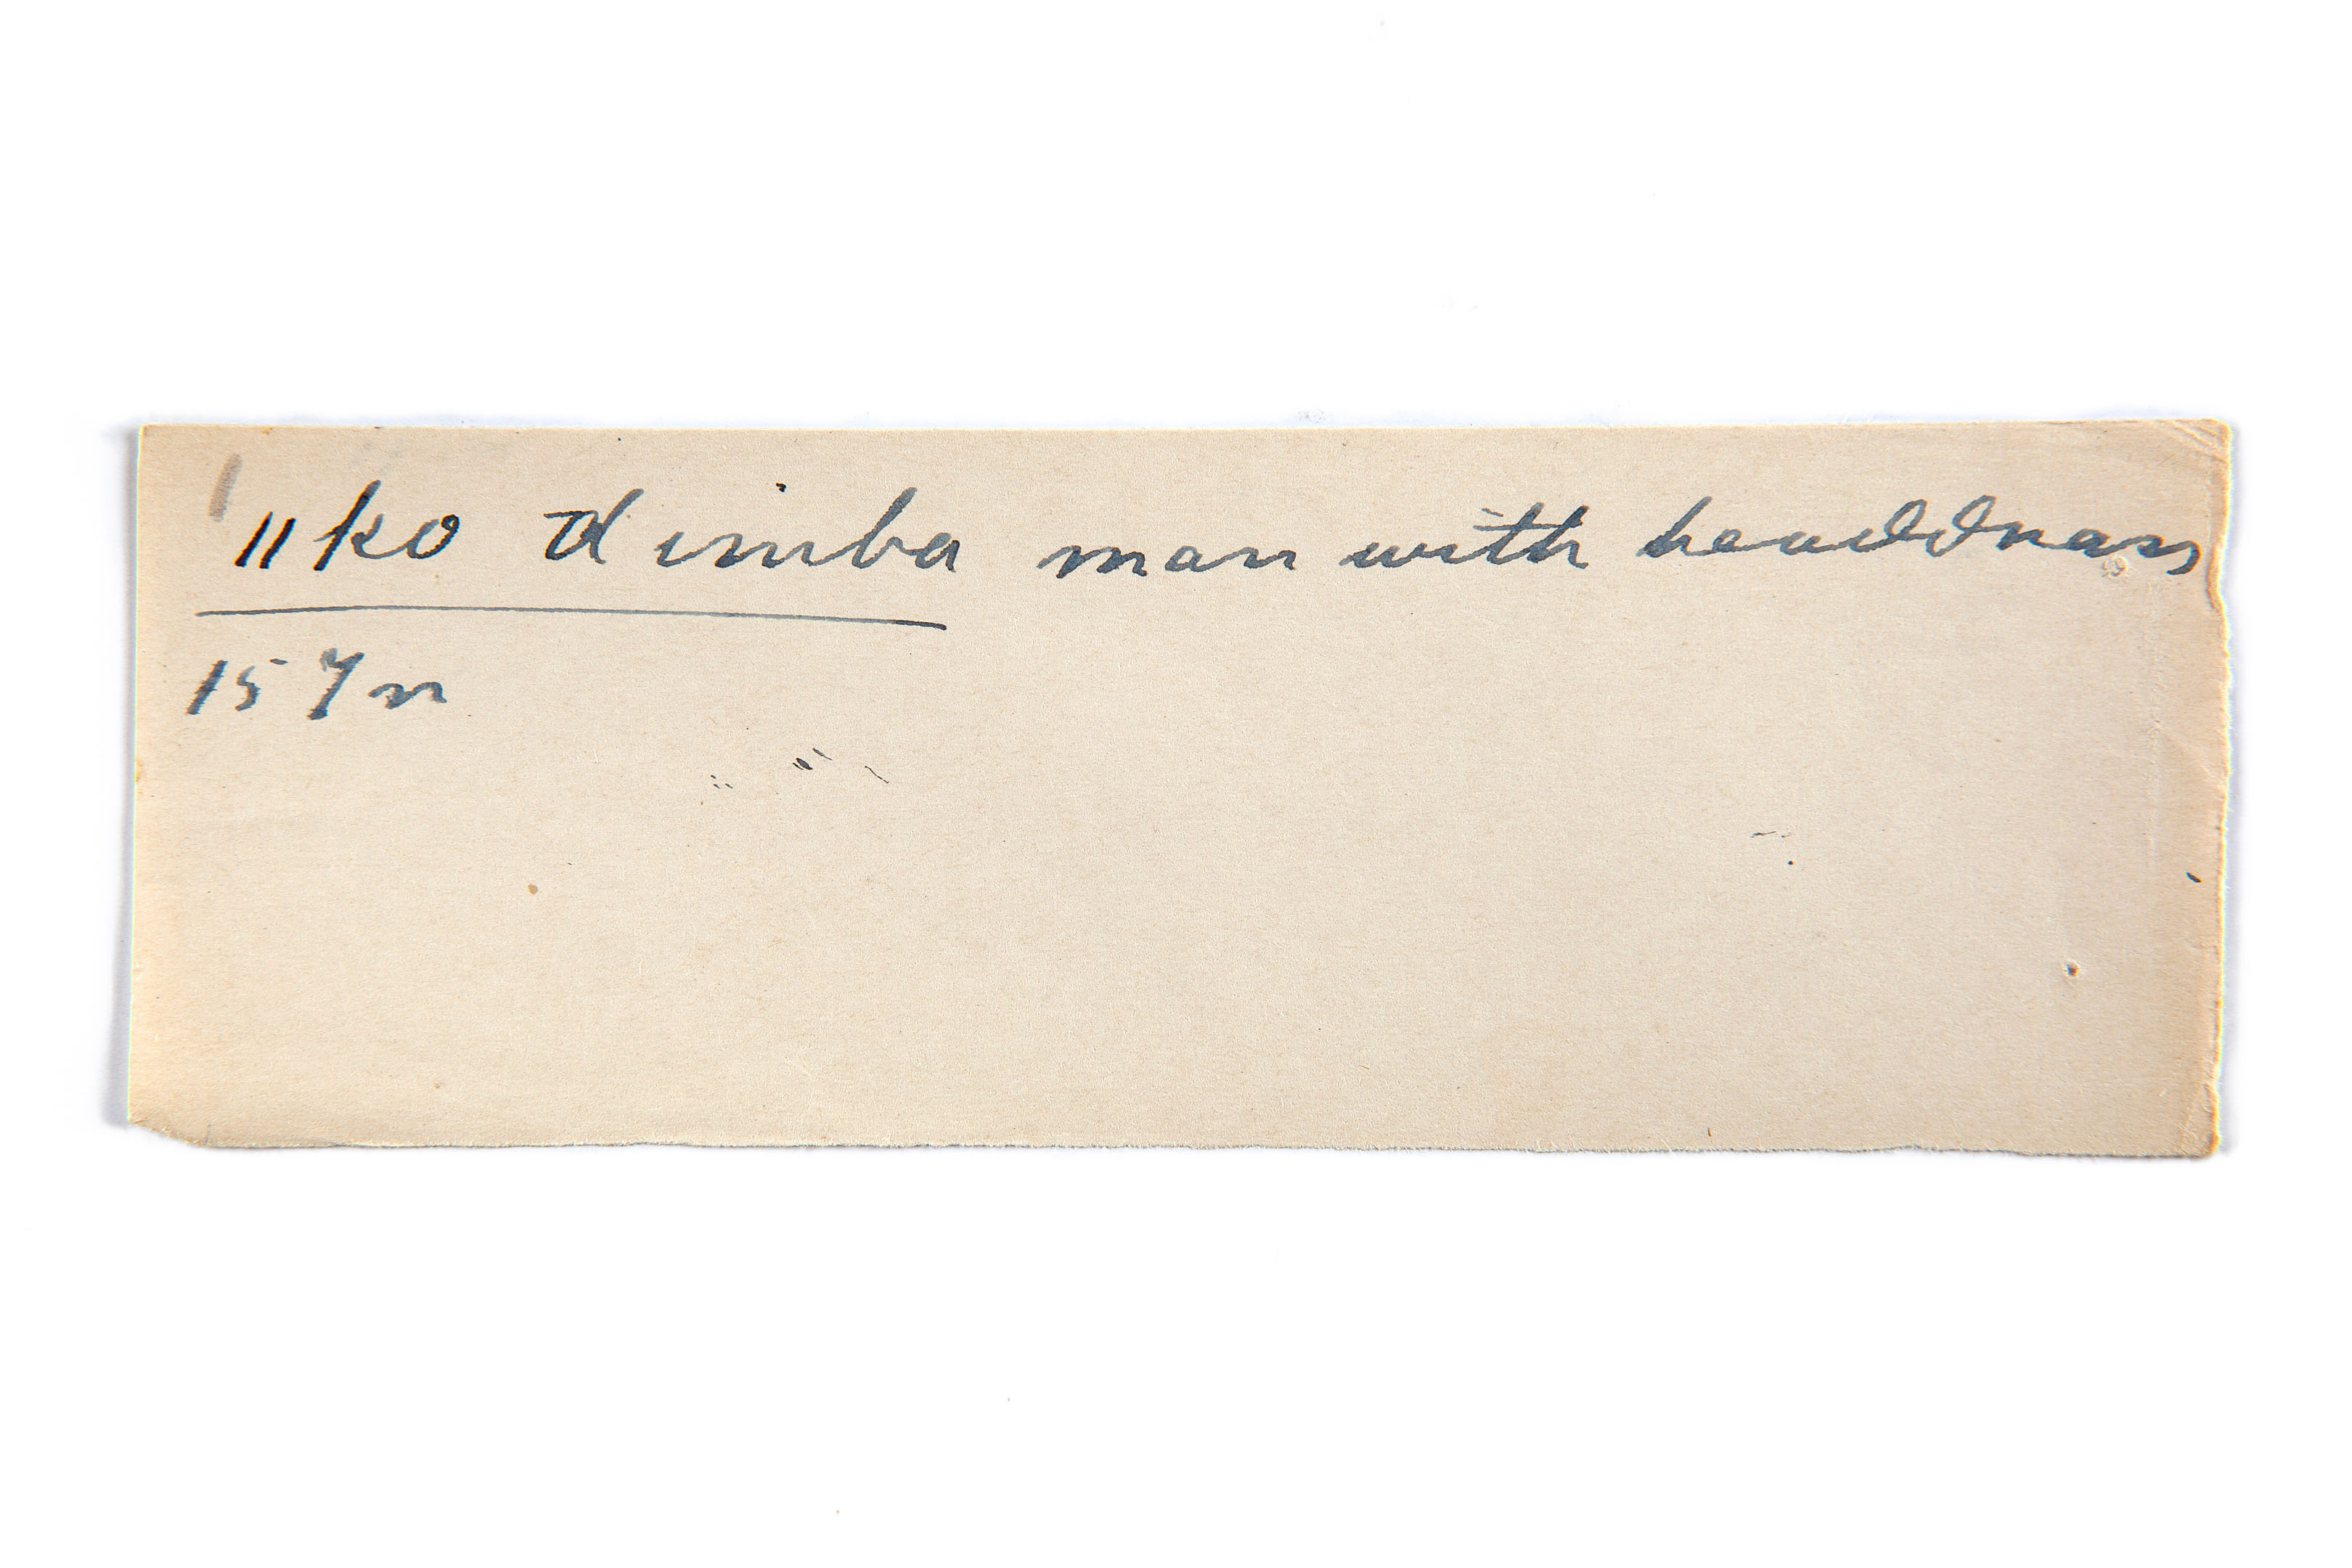 "ko dimba man with headdress
157n